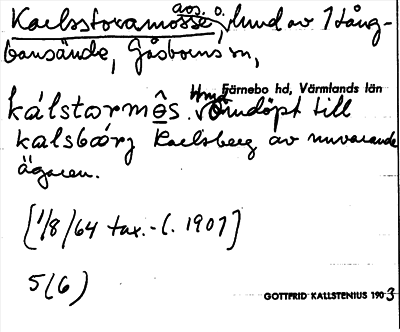 avs. o.
Karlsstoramosse, hmd av 1 tång-
bansände, Gåsborns sn,
Färnebo hd, Värmlands län
kálstωrmôs. Hmd omdöpt till
kalsbǽrj Karlsberg av nuvarande
ägaren.
[1/8/64 tax. - (. 1907]
5(6)
GOTTFRID KALLSTENIUS 1903